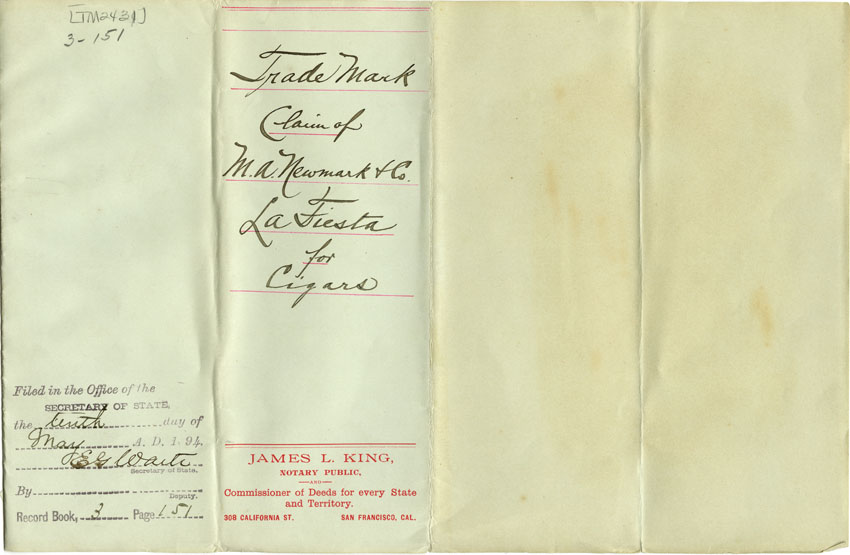 [TM2431]
3-151
Trade Mark
Claim of
M.A. Newmark & Co.
La Fiesta
for
Cigars
Filed in the Office of the
SECRETARY OF STATE,
the tenth day of
May A. D. 1 94.
E G Waite
Secretary of State.
By
Deputy.
Record Book, 3 Page 151
JAMES L. KING,
NOTARY PUBLIC,
—AND—
Commissioner of Deeds for every State
and Territory.
308 CALIFORNIA ST. SAN FRANCISCO, CAL.